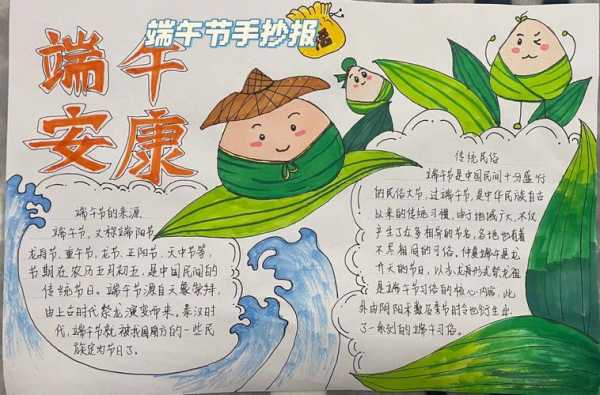 端午节手抄报
福
端午
安康
端午节的来源
端午节,又称端阳节
龙舟节,重午节,龙节,正阳节,天中节等,
节期在农历五月初五,是中国民间的
传统节日。端午节源自天象崇拜,
由上古时代祭龙演变而来。秦汉时
代,端午节就被我国南方的一些民
族定为节日了。
传统民俗
端午节是中国民间十分盛行
的民俗大节,过端午节,是中华民族自古
以来的传统习惯,由于地域广大,不仅
产生了众多相异的节名,各地也有着
不尽相同的习俗。仲夏端午是龙
升天的节日,以扒龙舟形式祭龙祖
是端午节习俗的核心内容,此
外由阴阳术数及季节时令也衍生出
了一系列的端午习俗。